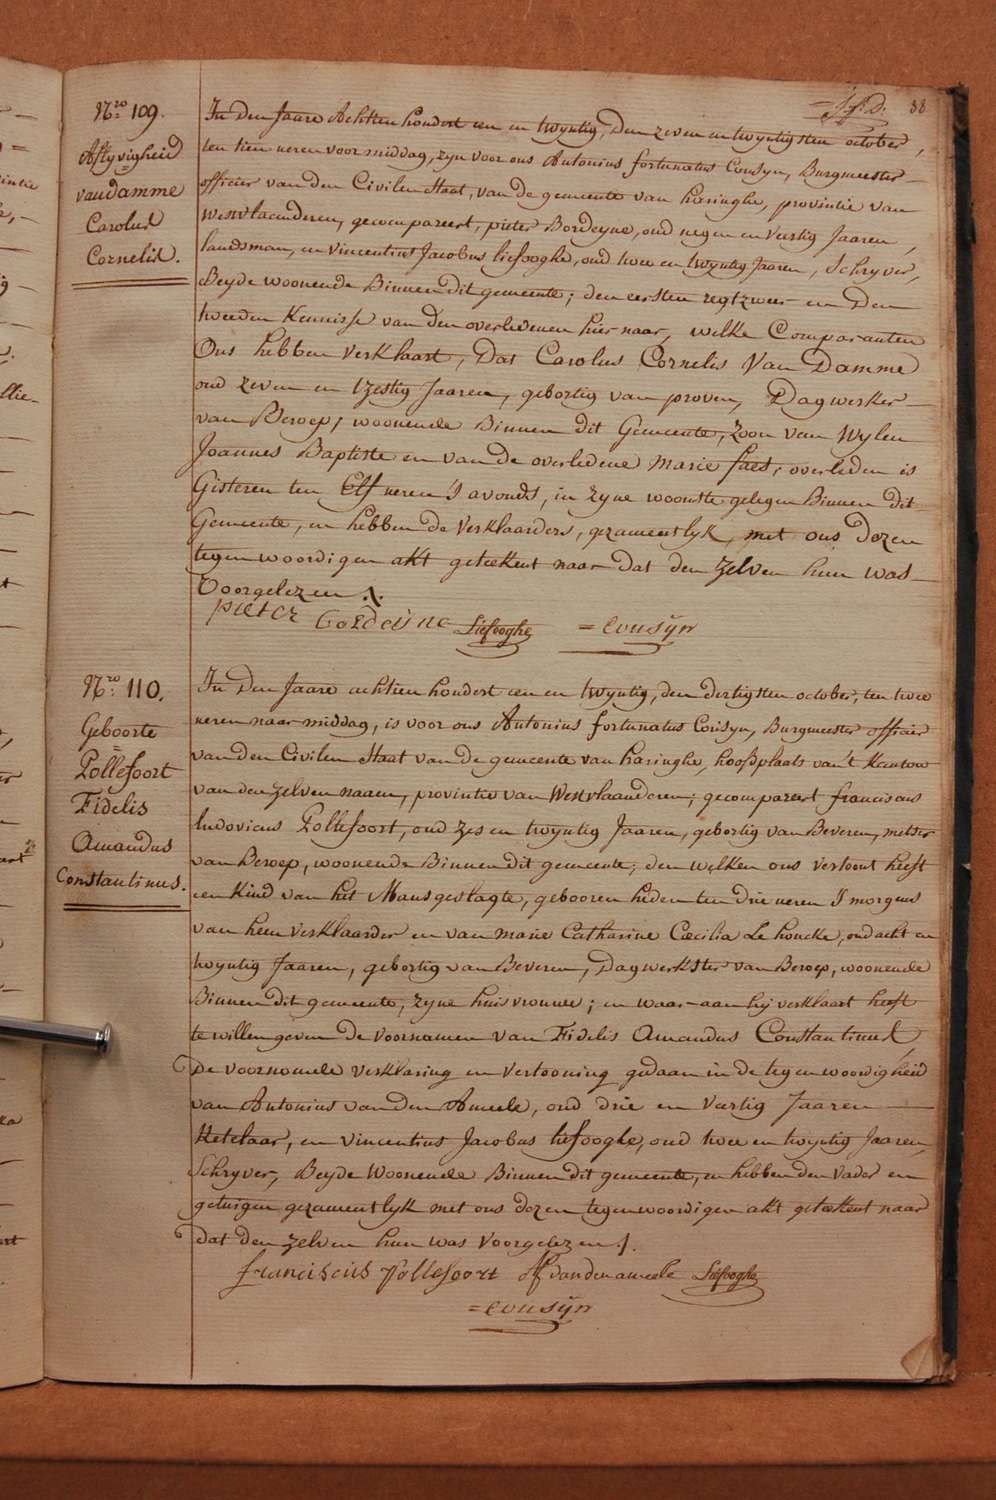 38
Nro 109.
Aflyvigheid
van damme
Carolus
Cornelis.
In den Jaare Achttien hondert een en twyntig, den zeven en twyntigsten october,
ten tien ueren voor middag, zyn voor ons Antonius fortunatus Cousyn, Burgmeester
officier van den Civilen Staat, van de gemeente van haringhe, provintie van
Westvlaenderen, gecompareert, pieter Bordeyne, oud negen en veertig Jaaren,
landsman, en vincentius Jacobus liefooghe, oud twee en twyntig Jaaren, Schryver,
Beyde woonende Binnen dit gemeente; den eersten regtzweer en den
tweeden Kennisse van den overledenen hier naar, welke Comparanten
Ons hebben verklaart, Dat Carolus Cornelis Van Damme
oud zeven en tzestig Jaaren, gebortig van proven, Dagwerker
van Beroep, woonende Binnen dit Gemeente, zoon van Wylen
Joannes Baptiste en van de overledene Marie faes, overleden is
Gisteren ten Elf ueren 's avonds, in zyne woonste gelegen Binnen dit
Gemeente, en hebben de Verklaarders, gezamentlyk, met ons dezen
tegenwoordigen akt geteekent naar dat den zelven hun was
Voorgelezen /.
pieter bordeine Liefooghe = Cousÿn
Nro 110.
Geboorte
Pollefoort
Fidelis
Amandus
Constantinus.
In den Jaare achtien hondert een en twyntig, den dertigsten october, ten twee
ueren naar middag, is voor ons Antonius fortunatus Cousyn, Burgmeester officier
van den Civilen Staat van de gemeente van haringhe, hoofdplaats van't Kanton
van den zelven naam, provintie van Westvlaanderen; gecompareert franciscus
ludovicus Pollefoort, oud zes en twyntig Jaaren, gebortig van Beveren, metser
van Beroep, woonende Binnen dit gemeente; den welken ons vertoont heeft
een Kind van het Mansgeslagte, gebooren heden ten drie ueren S'morgens
van hem verklaarder en van marie Catharine Cæcilia Le houcke, oud acht en
twyntig Jaaren, gebortig van Beveren, Dagwerkster van Beroep, woonende
Binnen dit gemeente, zyne huisvrouwe; en waar-aan hy verklaart heeft
te willen geven de voornamen van Fidelis Amandus Constantinus,
De voornoemde verklaring en vertooning gedaan in de tegenwoordigheid
van Antonius van den Ameele, oud drie en veertig Jaaren
Ketelaar, en vincentius Jacobus liefooghe, oud twee en twyntig Jaaren,
Schryver, Beyde Woonende Binnen dit gemeente, en hebben den vader en
getuigen gezamentlyk met ons dezen tegenwoordigen akt geteekent naar
dat den zelven hun was voorgelezen /.
franciscus Pollefoort AF vandenameele Liefooghe
= Cousÿn